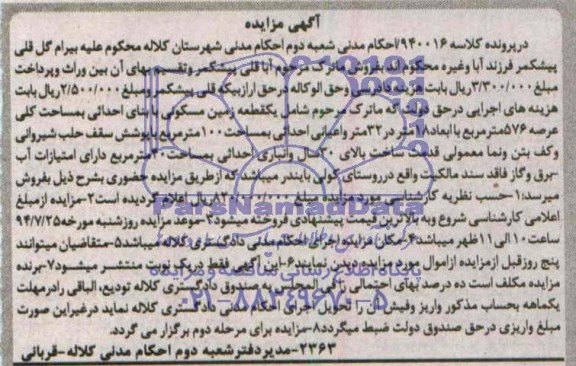 آگهی مزایده
درپرونده کلاسه ۹۴۰۰۱۶/احکام مدنی شعبه دوم احکام مدنی شهرستان کلاله محکوم علیه بیرام گل قلی
پیشکمر فرزند آبا وغیره محکوم اند بفروش ماترک مرحوم آبا قلی پیشکمر وتقسیم بهای آن بین وراث وپرداخت
مبلغ ۳/۳۰۰/۰۰۰ریال بابت هزینه دادرسی وحق الوکاله درحق ارازبیکه قلی پیشکمر ومبلغ ۲/۵۰۰/۰۰۰ریال بابت
هزینه های اجرایی درحق دولت که ماترک مرحوم شامل یکقطعه زمین مسکونی با بنای احداثی بمساحت کلی
عرصه ۵۷۶مترمربع با ابعاد۱۸متر در۳۲متر واعیانی احداثی بمساحت ۱۰۰مترمربع باپوشش سقف حلب شیروانی
وکف بتن ونما معمولی قدمت ساخت بالای ۳۰سال وانباری احداثی بمساحت ۳۰مترمربع دارای امتیازات آب
-برق وگاز فاقد سند مالکیت واقع درروستای کولی بایندر میباشد که ازطریق مزایده حضوری بشرح ذیل بفروش
میرسد:۱-حسب نظریه کارشناسی مورد مزایده مبلغ ریال اعلام گردیده است۲-مزایده ازمبلغ
اعلامی کارشناسی شروع وبه بالاترین قیمت پیشنهادی فروخته میشود۳-موعد مزایده روزشنبه مورخه۹۴/۷/۲۵
ساعت۱۰ الی۱۱ظهر میباشد۴-مکان مزایده اجرای احکام مدنی دادگستری کلاله میباشد۵-متقاضیان میتوانند
پنج روزقبل ازمزایده ازاموال مورد مزایده دیدن نمایند۶-این آگهی فقط دریک نوبت منتشر میشود۷-برنده
مزایده مکلف است ده درصد بهای احتمالی را فی المجلس به صندوق دادگستری کلاله تودیع، الباقی رادرمهلت
یکماهه بحساب مذکور واریز وفیش آن را تحویل اجرای احکام مدنی دادگستری کلاله نماید درغیراین صورت
مبلغ واریزی درحق صندوق دولت ضبط میگردد۸-مزایده برای مرحله دوم برگزار می گردد.
۲۳۶۳-مدیردفترشعبه دوم احکام مدنی کلاله-قربانی
ParsNamadData
پایگاه اطلاع رسانی مناقصه و مزایده
۰۲۱-۸۸۳۴۹۶۷۰-۵